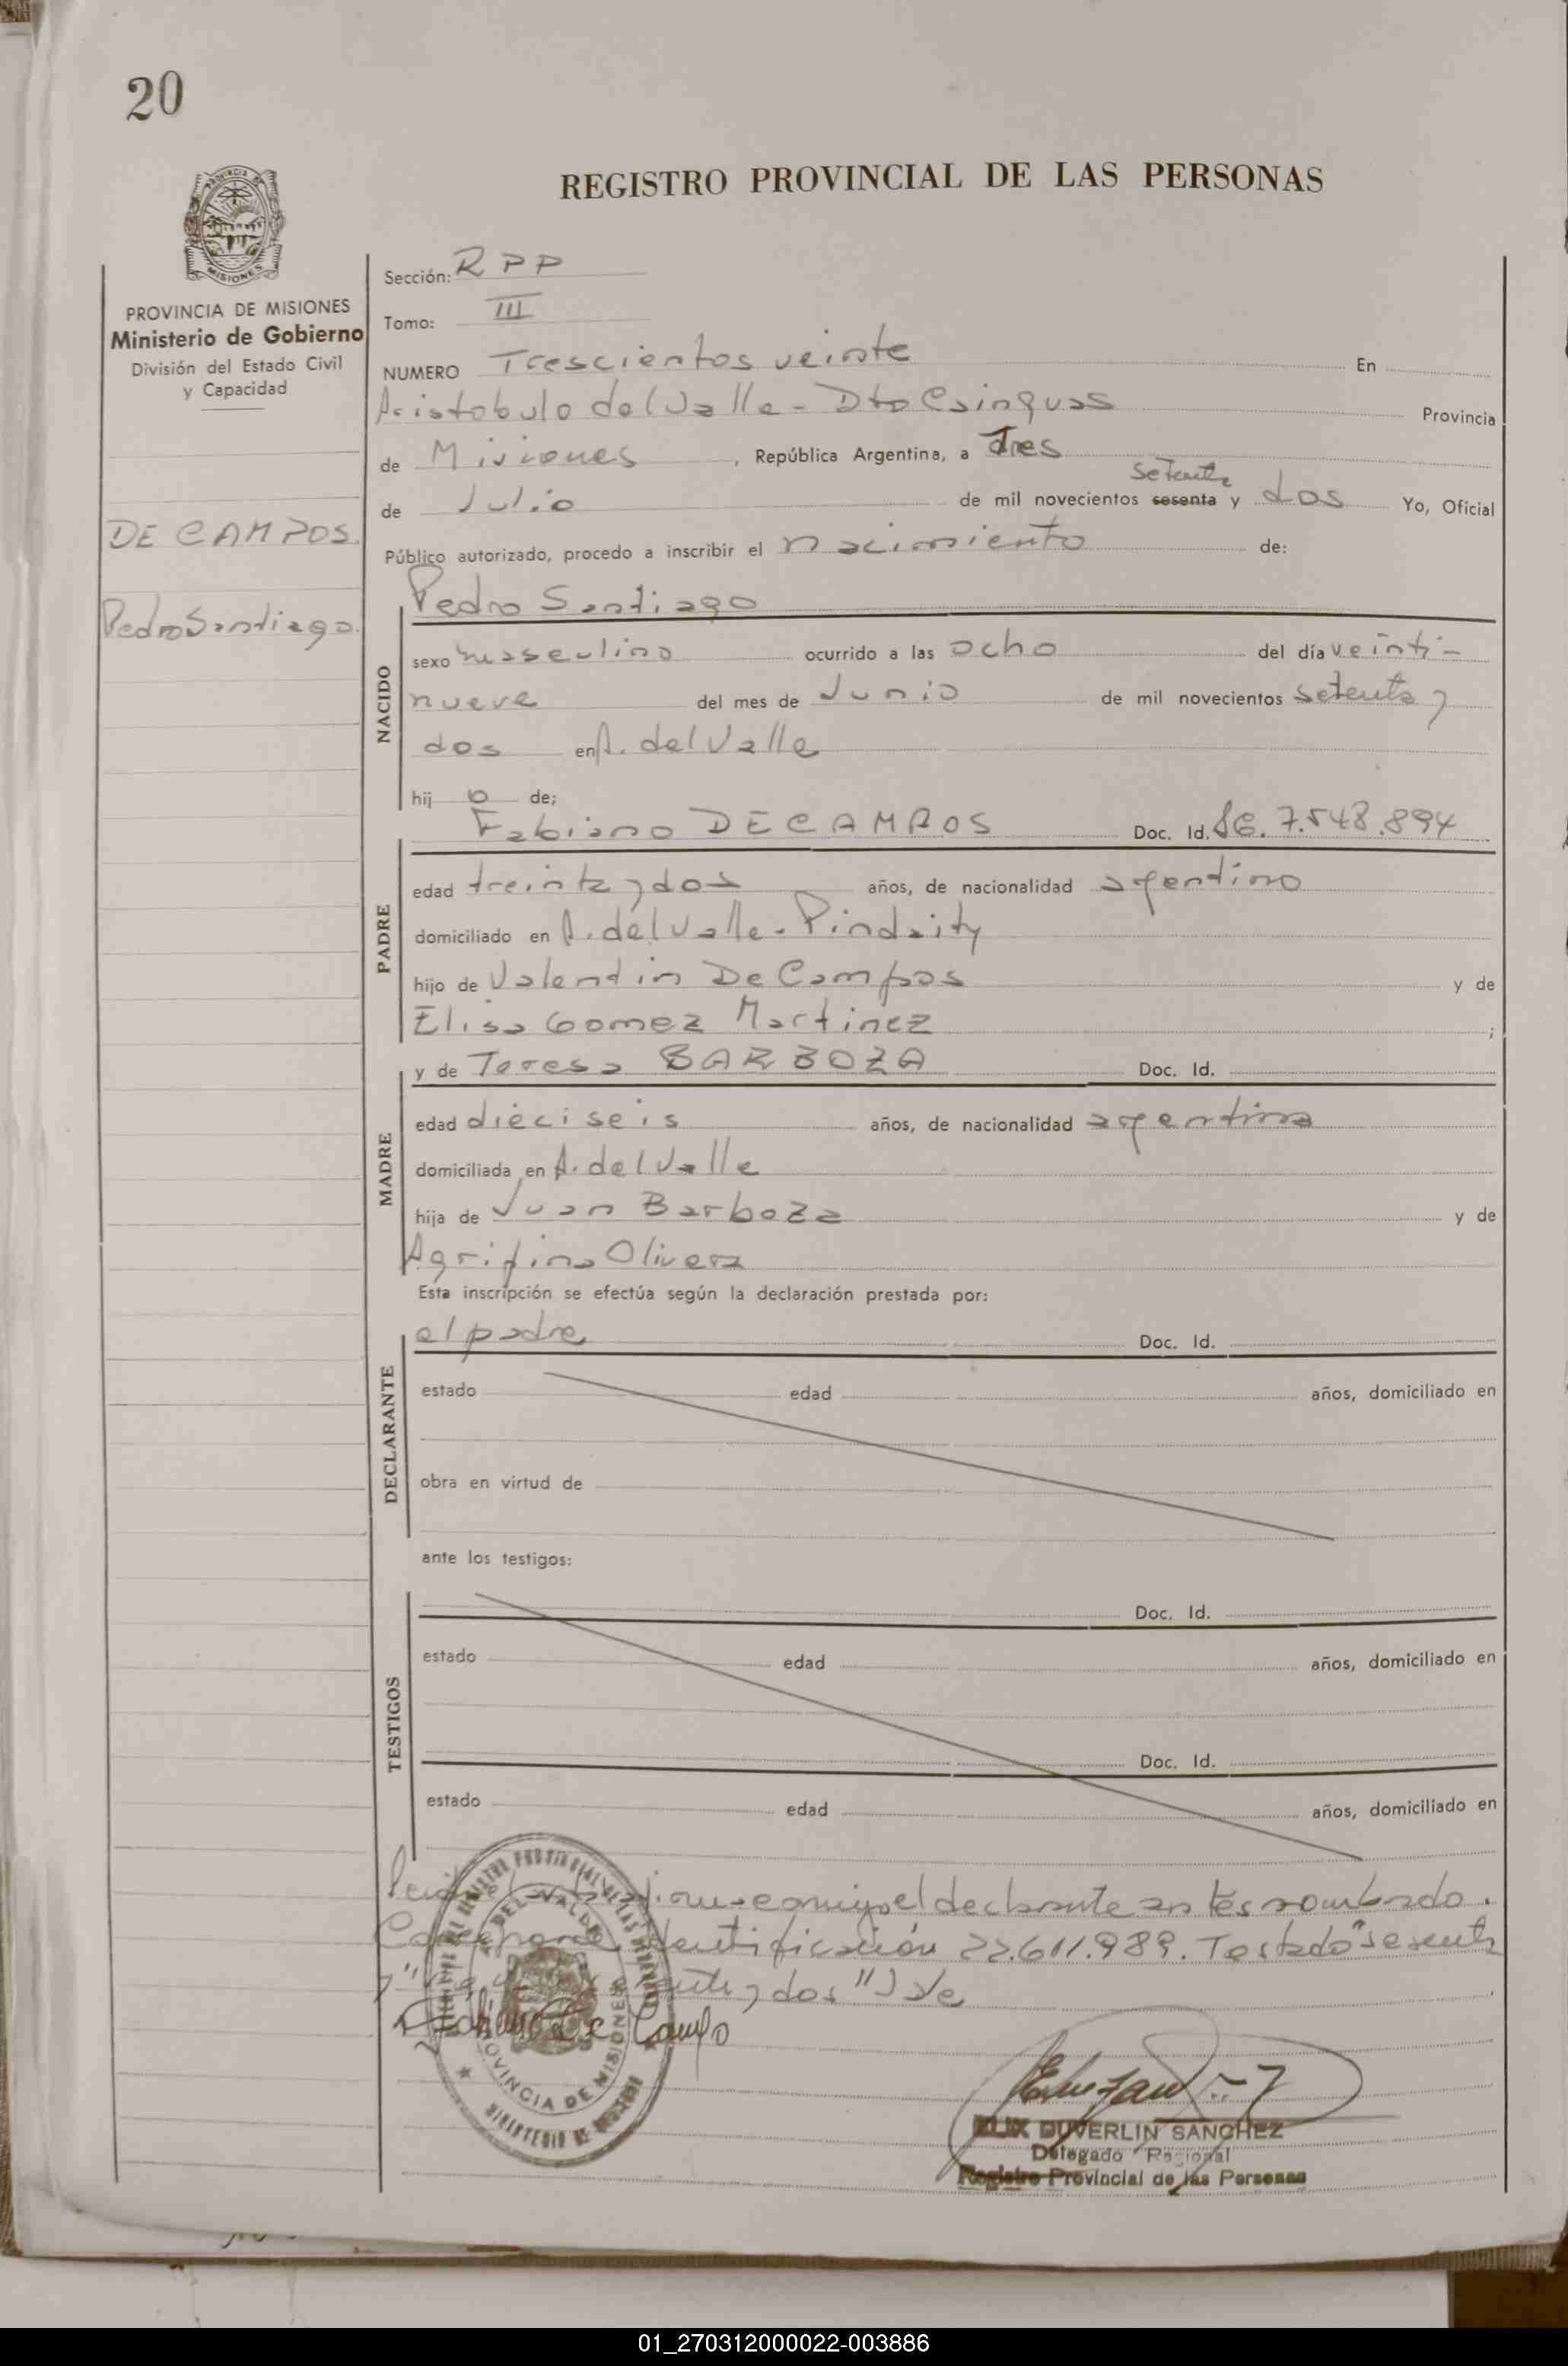 20
REGISTRO PROVINCIAL DE LAS PERSONAS
PROVINCIA DE MISIONES
Ministerio de Gobierno
División del Estado Civil
y Capacidad
DE CAMPOS
Pedro Santiago.
Sección: RPP
Tomo: III
NUMERO Trescientos veinte En
Aristobulo del Valle - Dto Cainguas Provincia
de Misiones, República Argentina, a Tres
setenta
de Julio de mil novecientos sesenta y dos Yo, Oficial
Público autorizado, procedo a inscribir el nacimiento de:
Pedro Santiago
NACIDO
sexo masculino ocurrido a las ocho del día veinti-
nueve del mes de Junio de mil novecientos setenta y
dos en A. del Valle
hij o de;
PADRE
Fabiano DE CAMPOS Doc. Id. 7.548.894
edad treinta y dos años, de nacionalidad argentino
domiciliado en A. del Valle - Pindaity
hijo de Valentin De Campos y de
Elisa Gomez Martinez ;
MADRE
y de Teresa BARBOZA Doc. Id.
edad dieciseis años, de nacionalidad argentina
domiciliada en A. del Valle
hija de Juan Barboza y de
Agrifina Olivera
Esta inscripción se efectúa según la declaración prestada por:
DECLARANTE
el padre Doc. Id.
estado edad años, domiciliado en
obra en virtud de
ante los testigos:
TESTIGOS
Doc. Id.
estado edad años, domiciliado en
Doc. Id.
estado edad años, domiciliado en
conmigo el declarante antes nombrado.
identificación 22.611.989. Testado "sesenta
y dos" Vale
De Campo
PROVINCIA DE MISIONES
DUVERLIN SANCHEZ
Delegado Regional
Registro Provincial de las Personas
01_270312000022-003886